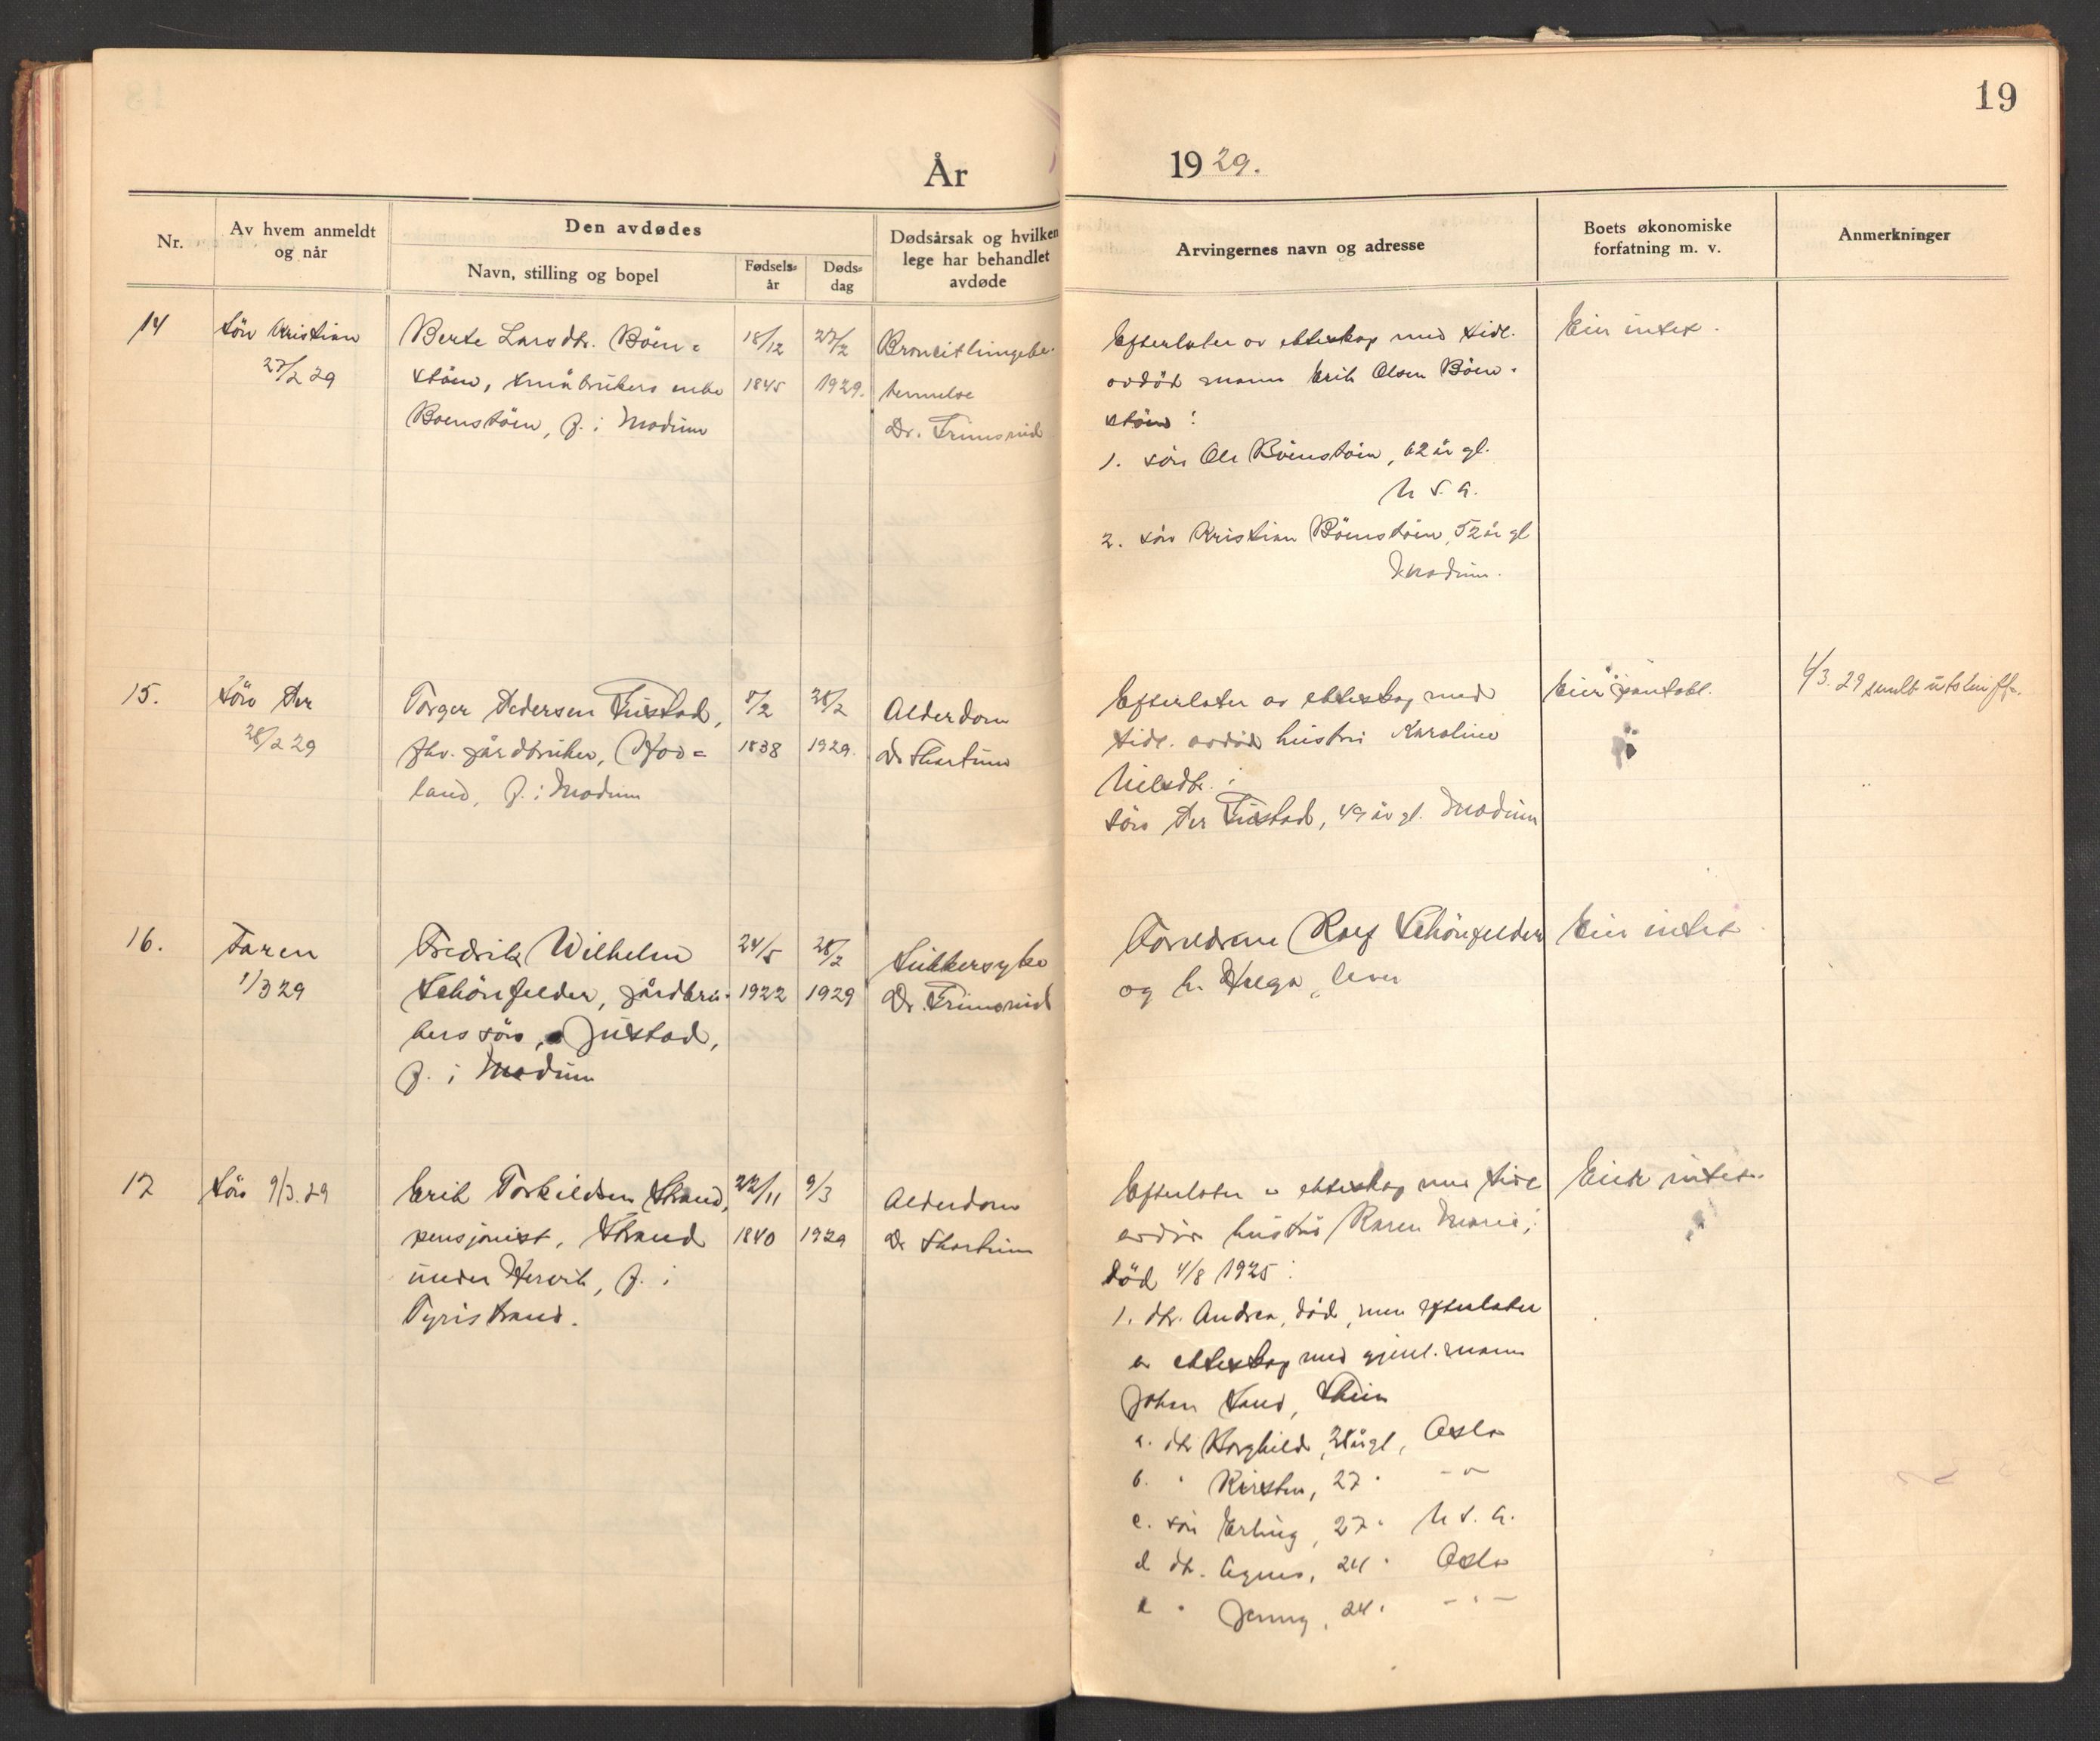 19
År 1929.
Nr.
Av hvem anmeldt
og når
Den avdødes
Navn, stilling og bopel
Fødsels-
år
Døds-
dag
Dødsårsak og hvilken
lege har behandlet
avdøde
Arvingernes navn og adresse
Boets økonomiske
forfatning m. v.
Anmerkninger
14
Søn Kristian
27/2 29
Berte Larsdtr. Böen-
støen, småbrukers enke
Boenstöen, f. i Modum
18/12
1845
27/2
1929.
Broncitlungebe-
tennelse
Dr. Frimsrud
Efterlater av ekteskap med tidl.
avdöd mann Erik Olsen Böen-
stöen:
1. sön Ole Böenstöen, 62 år gl.
U.S.A.
2. sön Kristian Böenstöen, 52 år gl
Modum.
Eier intet.
15.
Sön Per
28/2 29
Torger Pedersen Fustad,
fhv. gårdbruker, Hov-
land, f. i Modum
8/2
1838
28/2
1929.
Alderdom
Dr Thortum
Efterlater av ekteskap med
tidl. avdöd hustru Karoline
Nilsdtr.:
sön Per Fustad, 49 år gl. Modum
Eier pantobl.
1/3.29 sendt utskiftf.
16.
Faren
1/3 29
Fredrik Wilhelm
Schönfelder, gårdbru-
kers sön, Justad,
f. i Modum
24/5
1922
28/2
1929
Sukkersyke
Dr. Frimsrud
Foreldrene Rolf Schönfelder
og h. Helga, lever
Eier intet
17
Sön 9/3.29
Erik Torkildsen Strand,
pensjonist, Strand
under Hervik, f. i
Tyristrand.
22/11
1840
9/3
1929
Alderdom
Dr Thortum
Efterlater av ekteskap med tidl
avdöd hustru Karen Marie,
död 4/8 1925:
1. dtr. Andrea, död, men efterlater
av ekteskap med gjenl. mann
Johan Sand,
a. dtr Borghild, år gl, Oslo
b. " Kirsten, 27 " - " -
c. sön Erling, 27 " U.S.A.
d dtr. Agnes, 24 " Oslo
e " Jenny, 24 " - " -
Eier intet.